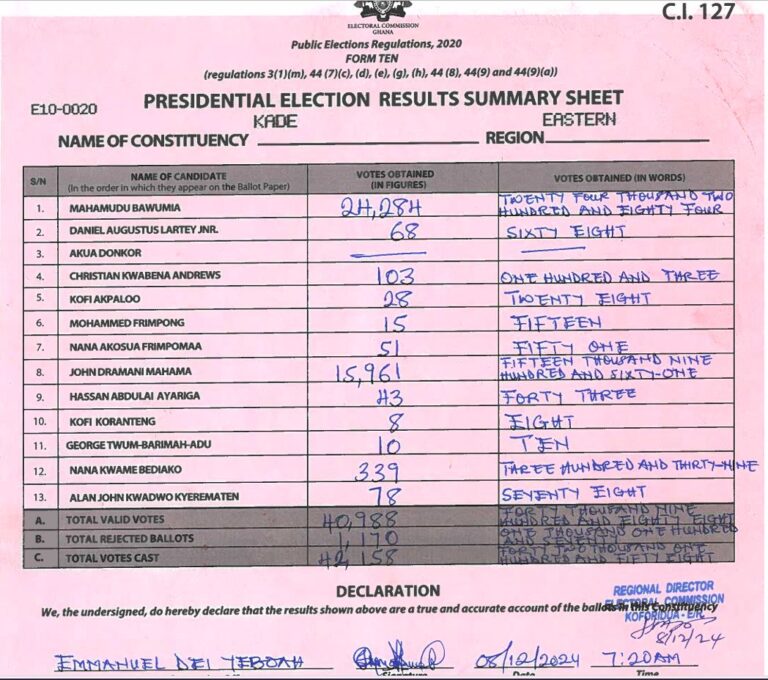 C.I. 127
ELECTORAL COMMISSION
GHANA
Public Elections Regulations, 2020
FORM TEN
(regulations 3(1)(m), 44 (7)(c), (d), (e), (g), (h), 44 (8), 44(9) and 44(9)(a))
E10-0020
PRESIDENTIAL ELECTION RESULTS SUMMARY SHEET
NAME OF CONSTITUENCY KADE REGION EASTERN
S/N NAME OF CANDIDATE (In the order in which they appear on the Ballot Paper) VOTES OBTAINED (IN FIGURES) VOTES OBTAINED (IN WORDS)
1. MAHAMUDU BAWUMIA 24,284 TWENTY FOUR THOUSAND TWO HUNDRED AND EIGHTY FOUR
2. DANIEL AUGUSTUS LARTEY JNR. 68 SIXTY EIGHT
3. AKUA DONKOR
4. CHRISTIAN KWABENA ANDREWS 103 ONE HUNDRED AND THREE
5. KOFI AKPALOO 28 TWENTY EIGHT
6. MOHAMMED FRIMPONG 15 FIFTEEN
7. NANA AKOSUA FRIMPOMAA 51 FIFTY ONE
8. JOHN DRAMANI MAHAMA 15,961 FIFTEEN THOUSAND NINE HUNDRED AND SIXTY-ONE
9. HASSAN ABDULAI AYARIGA 43 FORTY THREE
10. KOFI KORANTENG 8 EIGHT
11. GEORGE TWUM-BARIMAH-ADU 10 TEN
12. NANA KWAME BEDIAKO 339 THREE HUNDRED AND THIRTY-NINE
13. ALAN JOHN KWADWO KYEREMATEN 78 SEVENTY EIGHT
A. TOTAL VALID VOTES 40,988 FORTY THOUSAND NINE HUNDRED AND EIGHTY EIGHT
B. TOTAL REJECTED BALLOTS 1,170 ONE THOUSAND ONE HUNDRED AND
C. TOTAL VOTES CAST 42,158 FORTY TWO THOUSAND ONE HUNDRED AND FIFTY EIGHT
DECLARATION
We, the undersigned, do hereby declare that the results shown above are a true and accurate account of the ballots in this Constituency
REGIONAL DIRECTOR
ELECTORAL COMMISSION
KOFORIDUA - E/R
8/12/24
EMMANUEL DEI YEBOAH 08/12/2024 7:20AM
Signature Date Time